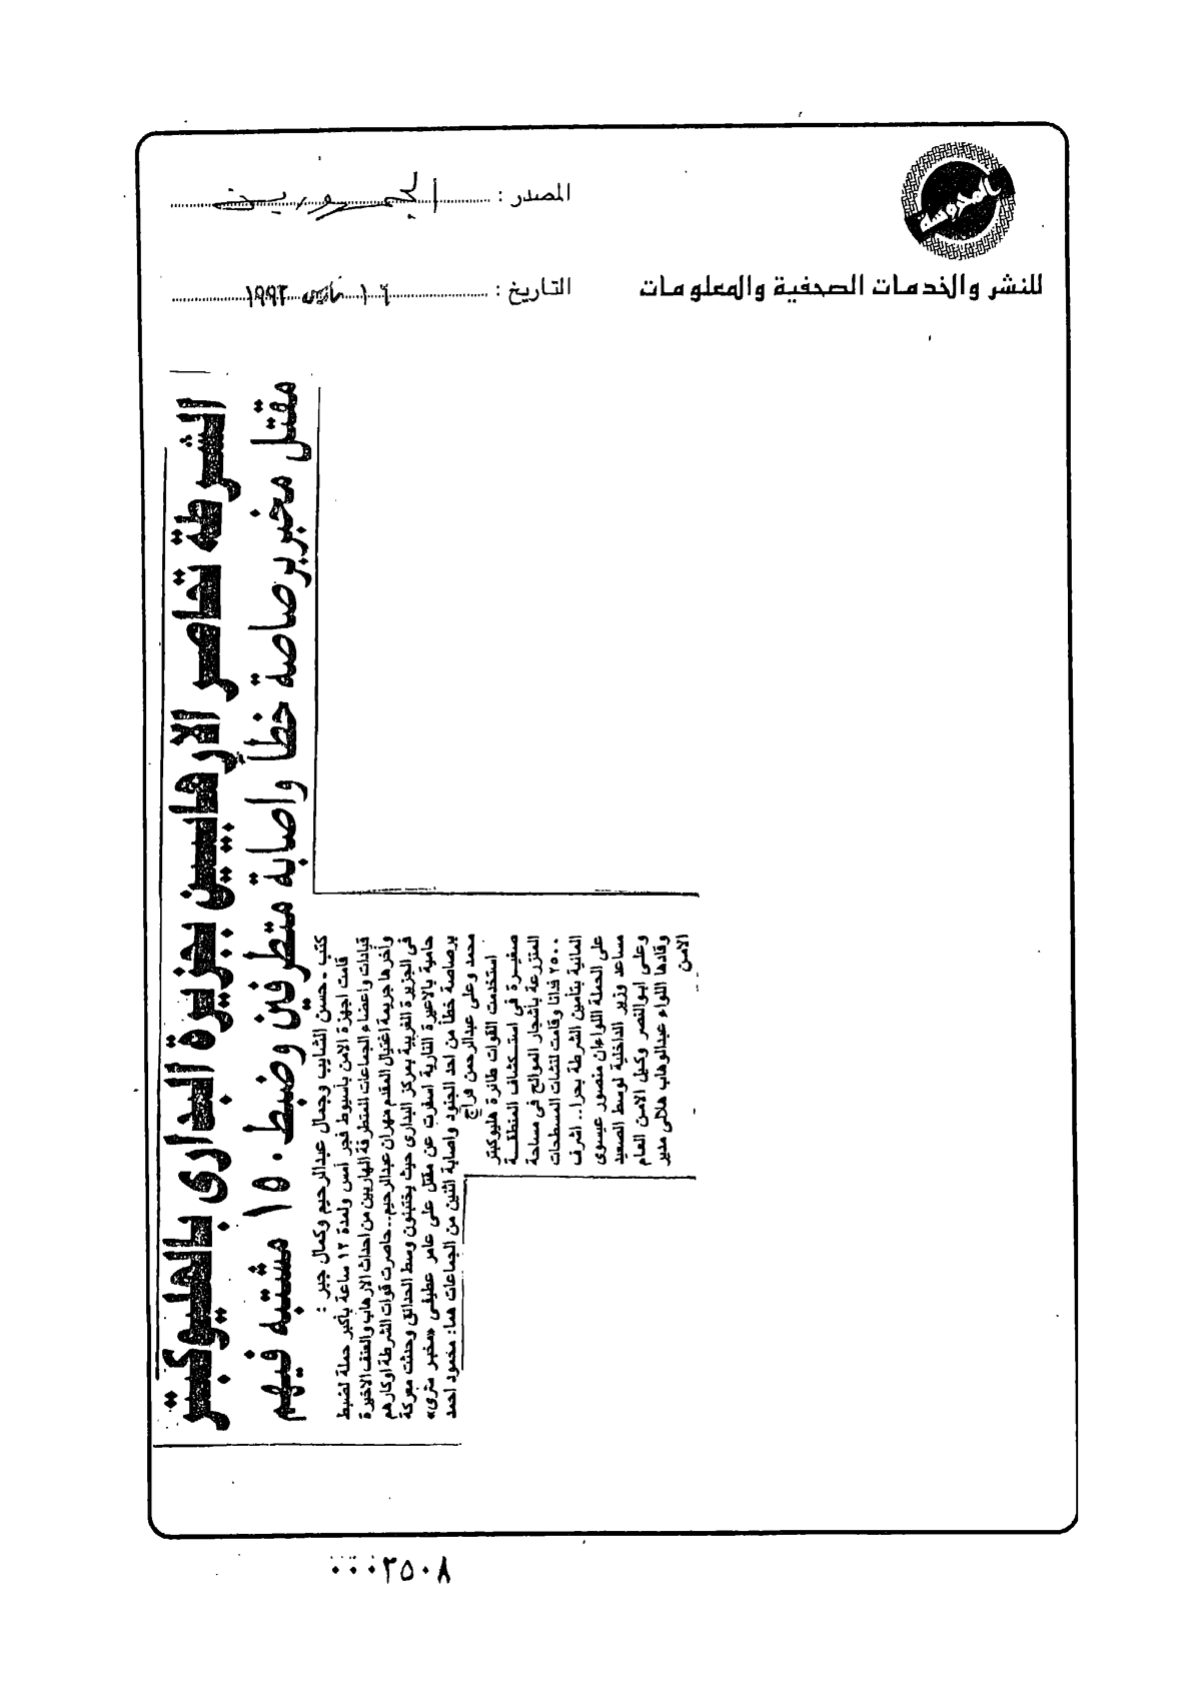 المحروسة
المصدر : الجمهورية
للنشر والخدمات الصحفية والمعلومات
التاريخ : ١٦ مارس ١٩٩٣
الشرطة تحاصر الارهابيين بجزيرة البدارى بالهليوكبتر
مقتل مخبر برصاصة خطأ واصابة متطرفين وضبط ١٥٠ مشتبه فيهم
كتب - حسن الشايب وجمال عبدالرحيم وكمال جبر :
قامت اجهزة الامن بأسيوط فجر أمس ولمدة ١٢ ساعة بأكبر حملة لضبط
قيادات وأعضاء الجماعات المتطرفة الهاربين من احداث الارهاب والعنف الاخيرة
وأخرها جريمة اغتيال المقدم مهران عبدالرحيم.. حاصرت قوات الشرطة اوكارهم
فى الجزيرة الغربية بمركز البدارى حيث يختبئون وسط الحدائق وحدثت معركة
حامية بالاعيرة النارية اسفرت عن مقتل على عامر عطيفى «مخبر سرى»
برصاصة خطأ من احد الجنود واصابة اثنين من الجماعات هما: محمود احمد
محمد وعلى عبدالرحمن فراج
استخدمت القوات طائرة هليوكبتر
صغيرة فى استكشاف المنطقة
المنزرعة بأشجار الموالح فى مساحة
٢٥٠٠ فدانا وقامت لنشات المسطحات
المائية بتأمين الشرطة بحرا.. اشرف
على الحملة اللواءان منصور عيسوى
مساعد وزير الداخلية لوسط الصعيد
وعلى ابوالنصر وكيل الامن العام
وقادها اللواء عبدالوهاب هلالى مدير
الامن
٠٠٠٢٥٠٨